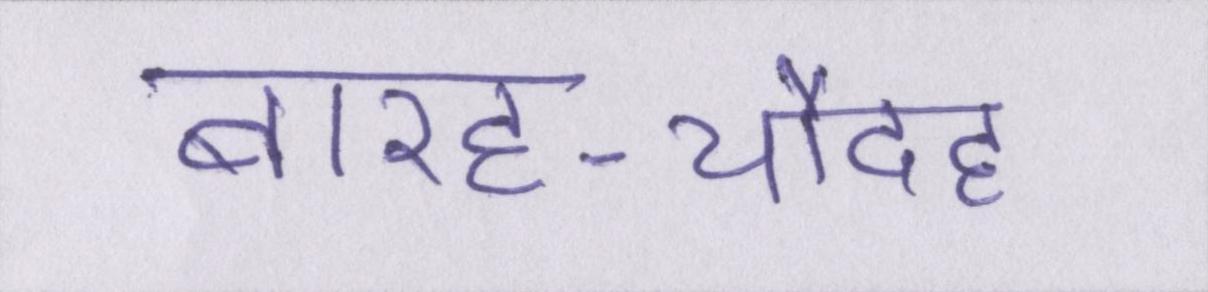 बारह-चौदह